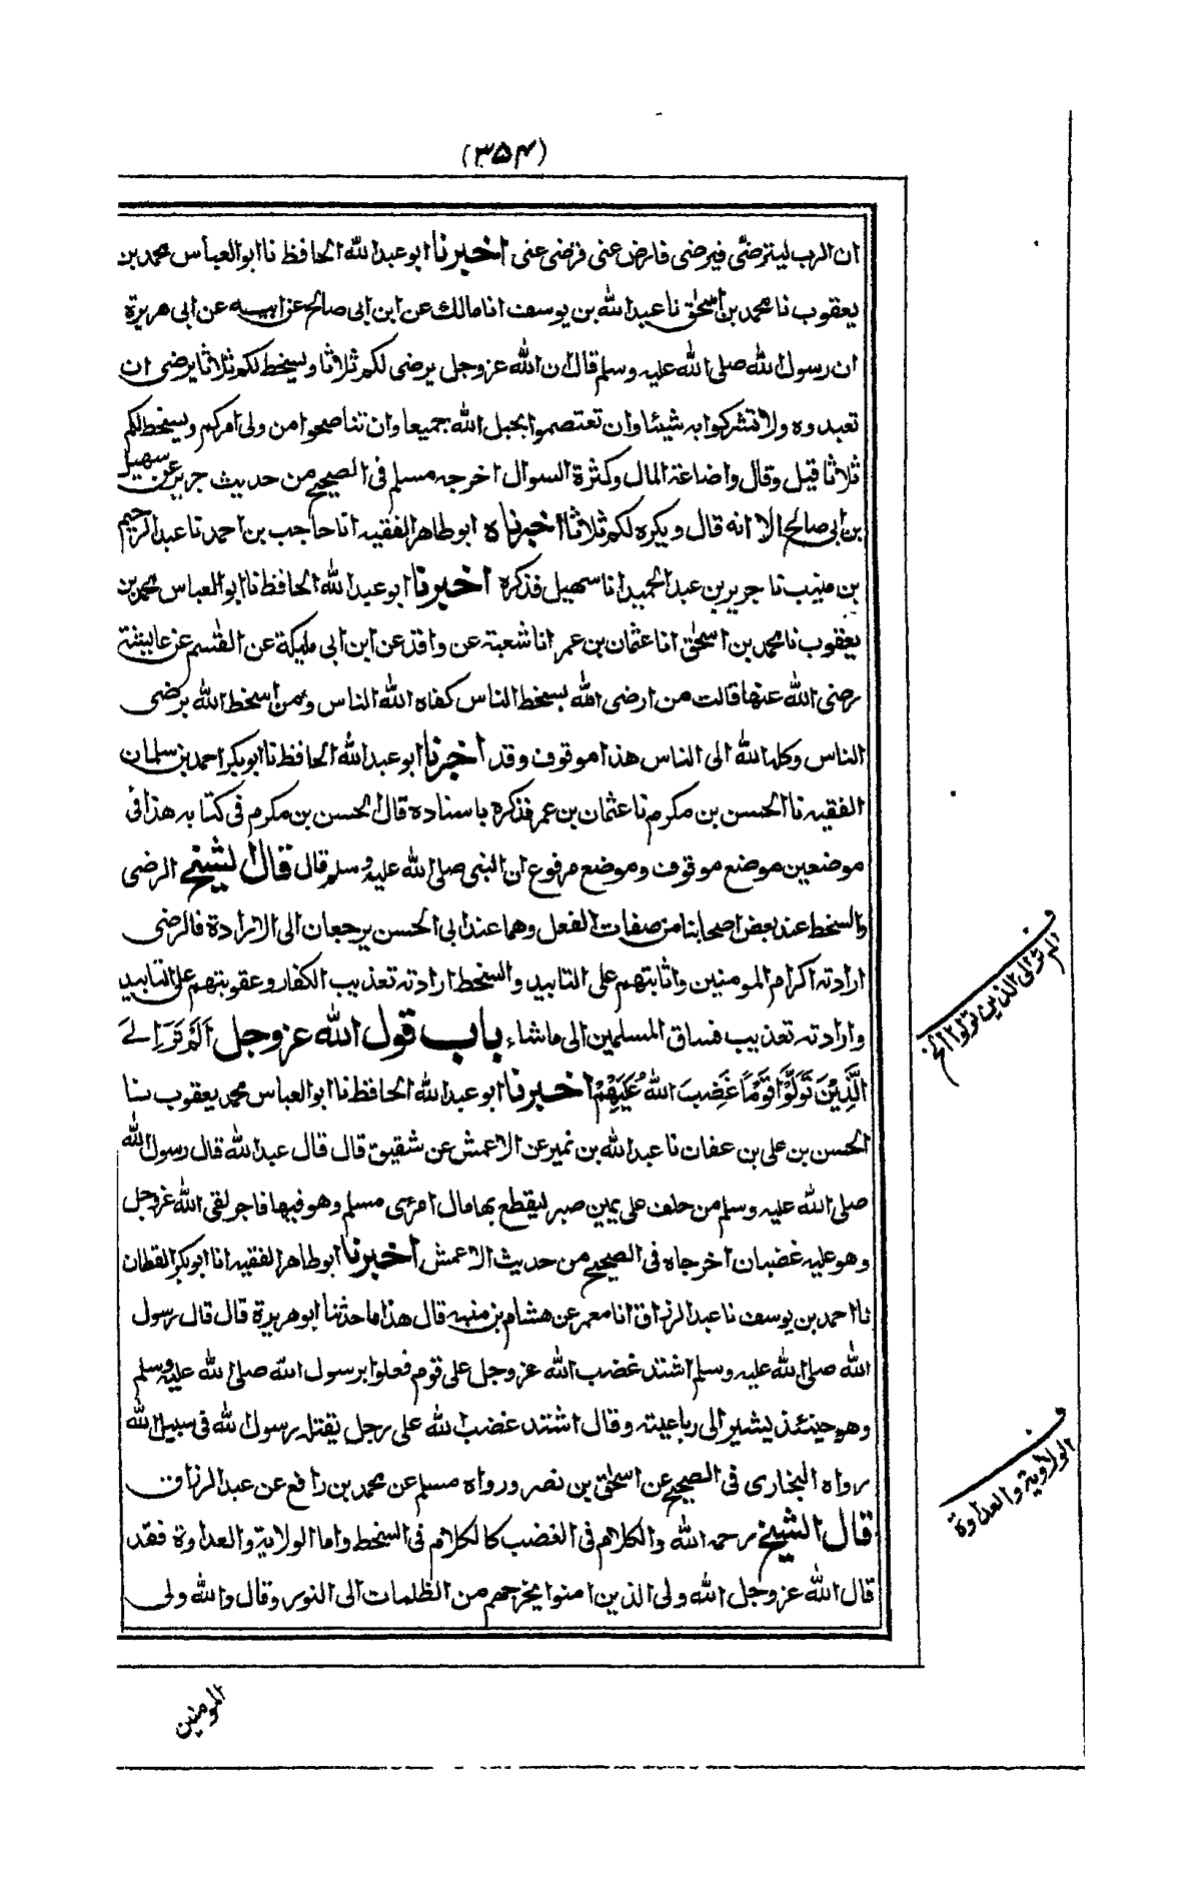 (٣٥٤)
ان الرب ليترضّى فيرضى فارض عنى فرضى عنى اخبرنا ابو عبد الله الحافظ نا ابو العباس محمد بن
يعقوب نا محمد بن اسحٰق نا عبد الله بن يوسف انا مالك عن ابن ابى صالح عن ابيه عن ابى هريرة
ان رسول الله صلى الله عليه وسلم قال ان الله عز وجل يرضى لكم ثلاثا ويسخط لكم ثلاثا يرضى ان
تعبدوه ولا تشركوا به شيئا وان تعتصموا بحبل الله جميعا وان تناصحوا من ولى امركم ويسخط لكم
ثلاثا قيل وقال واضاعة المال وكثرة السوال اخرجه مسلم فى الصحيح من حديث جرير عن سهيل
بن ابى صالح الا انه قال ويكره لكم ثلاثا اخبرناه ابو طاهر الفقيه انا حاجب بن احمد نا عبد الرحيم
بن منيب نا جرير بن عبد الحميد انا سهيل فذكره اخبرنا ابو عبد الله الحافظ نا ابو العباس محمد بن
يعقوب نا محمد بن اسحٰق انا عثمان بن عمر انا شعبة عن واقد عن ابن ابى مليكة عن القٰسم عن عايشة
رضى الله عنها قالت من ارضى الله بسخط الناس كفاه الله الناس ومن اسخط الله برضى
الناس وكله الله الى الناس هذا موقوف وقد اخبرنا ابو عبد الله الحافظ نا ابو بكر احمد بن سلمان
الفقيه نا الحسن بن مكرم نا عثمان بن عمر فذكره باسناده قال الحسن بن مكرم فى كتابه هذا فى
موضعين موضع موقوف وموضع مرفوع ان النبى صلى الله عليه وسلم قال قال الشيخ الرضى
والسخط عند بعض اصحابنا من صفات الفعل وهما عند ابى الحسن يرجعان الى الارادة فالرضى
ارادته اكرام المومنين واثابتهم على التابيد والسخط ارادته تعذيب الكفار وعقوبتهم على التابيد
وارادته تعذيب فساق المسلمين الى ماشاء باب قول الله عز وجل اَلَمْ تَرَ اِلَى
الَّذِيْنَ تَوَلَّوْا قَوْمًا غَضِبَ اللهُ عَلَيْهِمْ اخبرنا ابو عبد الله الحافظ نا ابو العباس محمد يعقوب نا
الحسن بن على بن عفان نا عبد الله بن نمير عن الاعمش عن شقيق قال قال عبد الله قال رسول الله
صلى الله عليه وسلم من حلف على يمين صبر ليقطع بها مال امرئ مسلم وهو فيها فاجر لقى الله عز وجل
وهو عليه غضبان اخرجاه فى الصحيح من حديث الاعمش اخبرنا ابو طاهر الفقيه انا ابو بكر القطان
نا احمد بن يوسف نا عبد الرزاق انا معمر عن هشام بن منبه قال هذا ما حدثنا ابو هريرة قال قال رسول
الله صلى الله عليه وسلم اشتد غضب الله عز وجل على قوم فعلوا برسول الله صلى الله عليه وسلم
وهو حينئذ يشير الى رباعيته وقال اشتد غضب الله على رجل يقتله رسول الله فى سبيل الله
رواه البخارى فى الصحيح عن اسحٰق بن نصر ورواه مسلم عن محمد بن رافع عن عبد الرزاق
قال الشيخ رحمه الله والكلام فى الغضب كالكلام فى السخط واما الولاية والعداوة فقد
قال الله عز وجل الله ولى الذين امنوا يخرجهم من الظلمات الى النور وقال والله ولى
المومنين
ف
الم تر الى الذين تولوا الخ
ف
الولاوية والعداوة